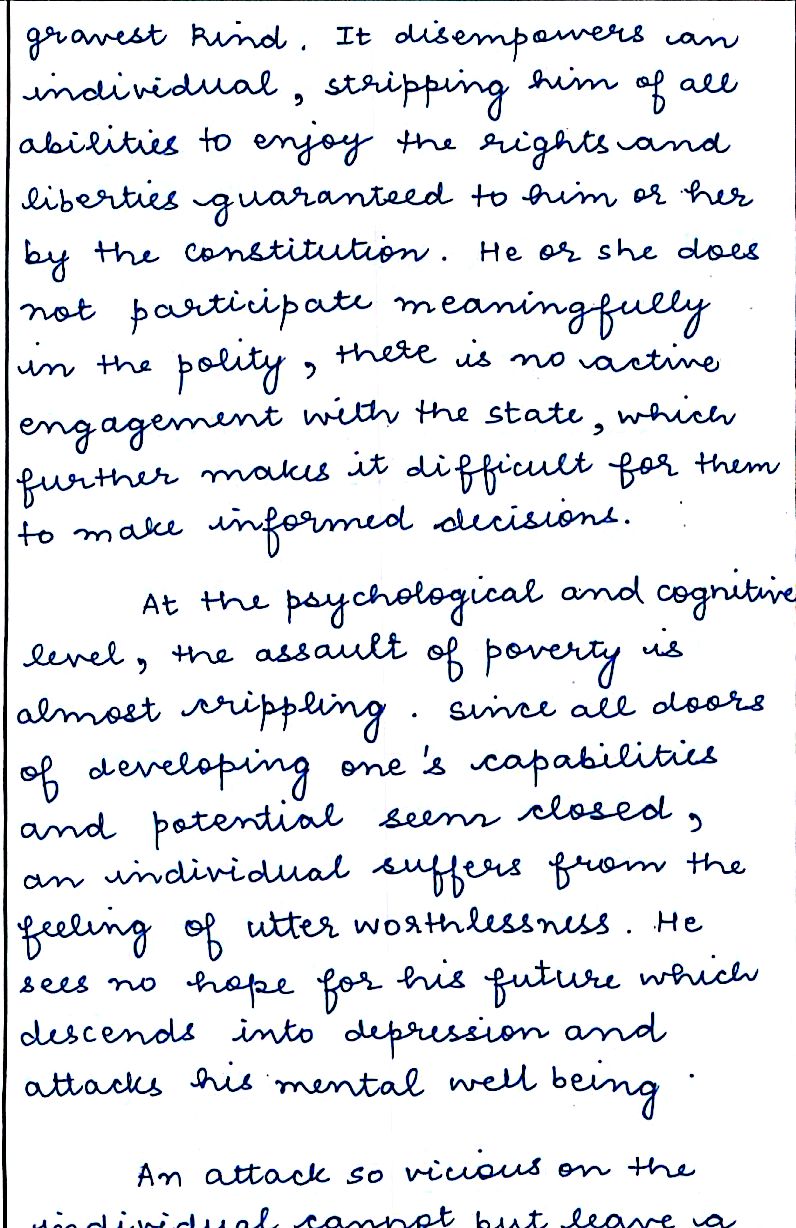 gravest kind. It disempowers an
individual, stripping him of all
abilities to enjoy the rights and
liberties guaranteed to him or her
by the constitution. He or she does
not participate meaningfully
in the polity, there is no active
engagement with the state, which
further makes it difficult for them
to make informed decisions.
At the psychological and cognitive
level, the assault of poverty is
almost crippling. Since all doors
of developing one's capabilities
and potential seem closed,
an individual suffers from the
feeling of utter worthlessness. He
sees no hope for his future which
descends into depression and
attacks his mental well being.
An attack so vicious on the
individual cannot but leave a